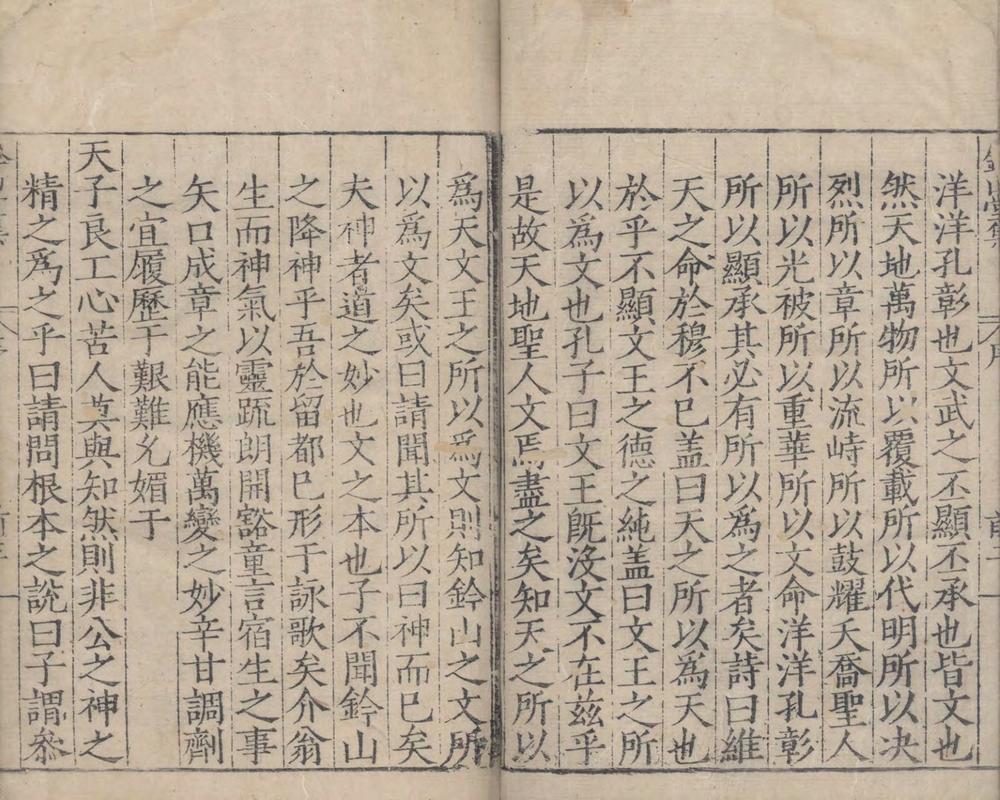 洋洋孔彰也文武之丕顯丕承也皆文也
然天地萬物所以覆載所以代明所以决
烈所以章所以流峙所以鼓耀夭喬聖人
所以光被所以重華所以文命洋洋孔彰
所以顯承其必有所以爲之者矣詩曰維
天之命於穆不已盖曰天之所以為天也
於乎不顯文王之德之純盖曰文王之所
以為文也孔子曰文王旣没文不在兹乎
是故天地聖人文焉盡之矣知天之所以
爲天文王之所以爲文則知鈐山之文所
以爲文矣或曰請聞其所以曰神而已矣
夫神者道之妙也文之本也子不聞鈐山
之降神乎吾於留都已形于詠歌矣介翁
生而神氣以靈疏朗開豁童言宿生之事
矢口成章之能應機萬變之妙辛甘調劑
之宜履歷于艱難允媚于
天子良工心苦人莫與知然則非公之神之
精之爲之乎曰請問根本之說曰子謂叅